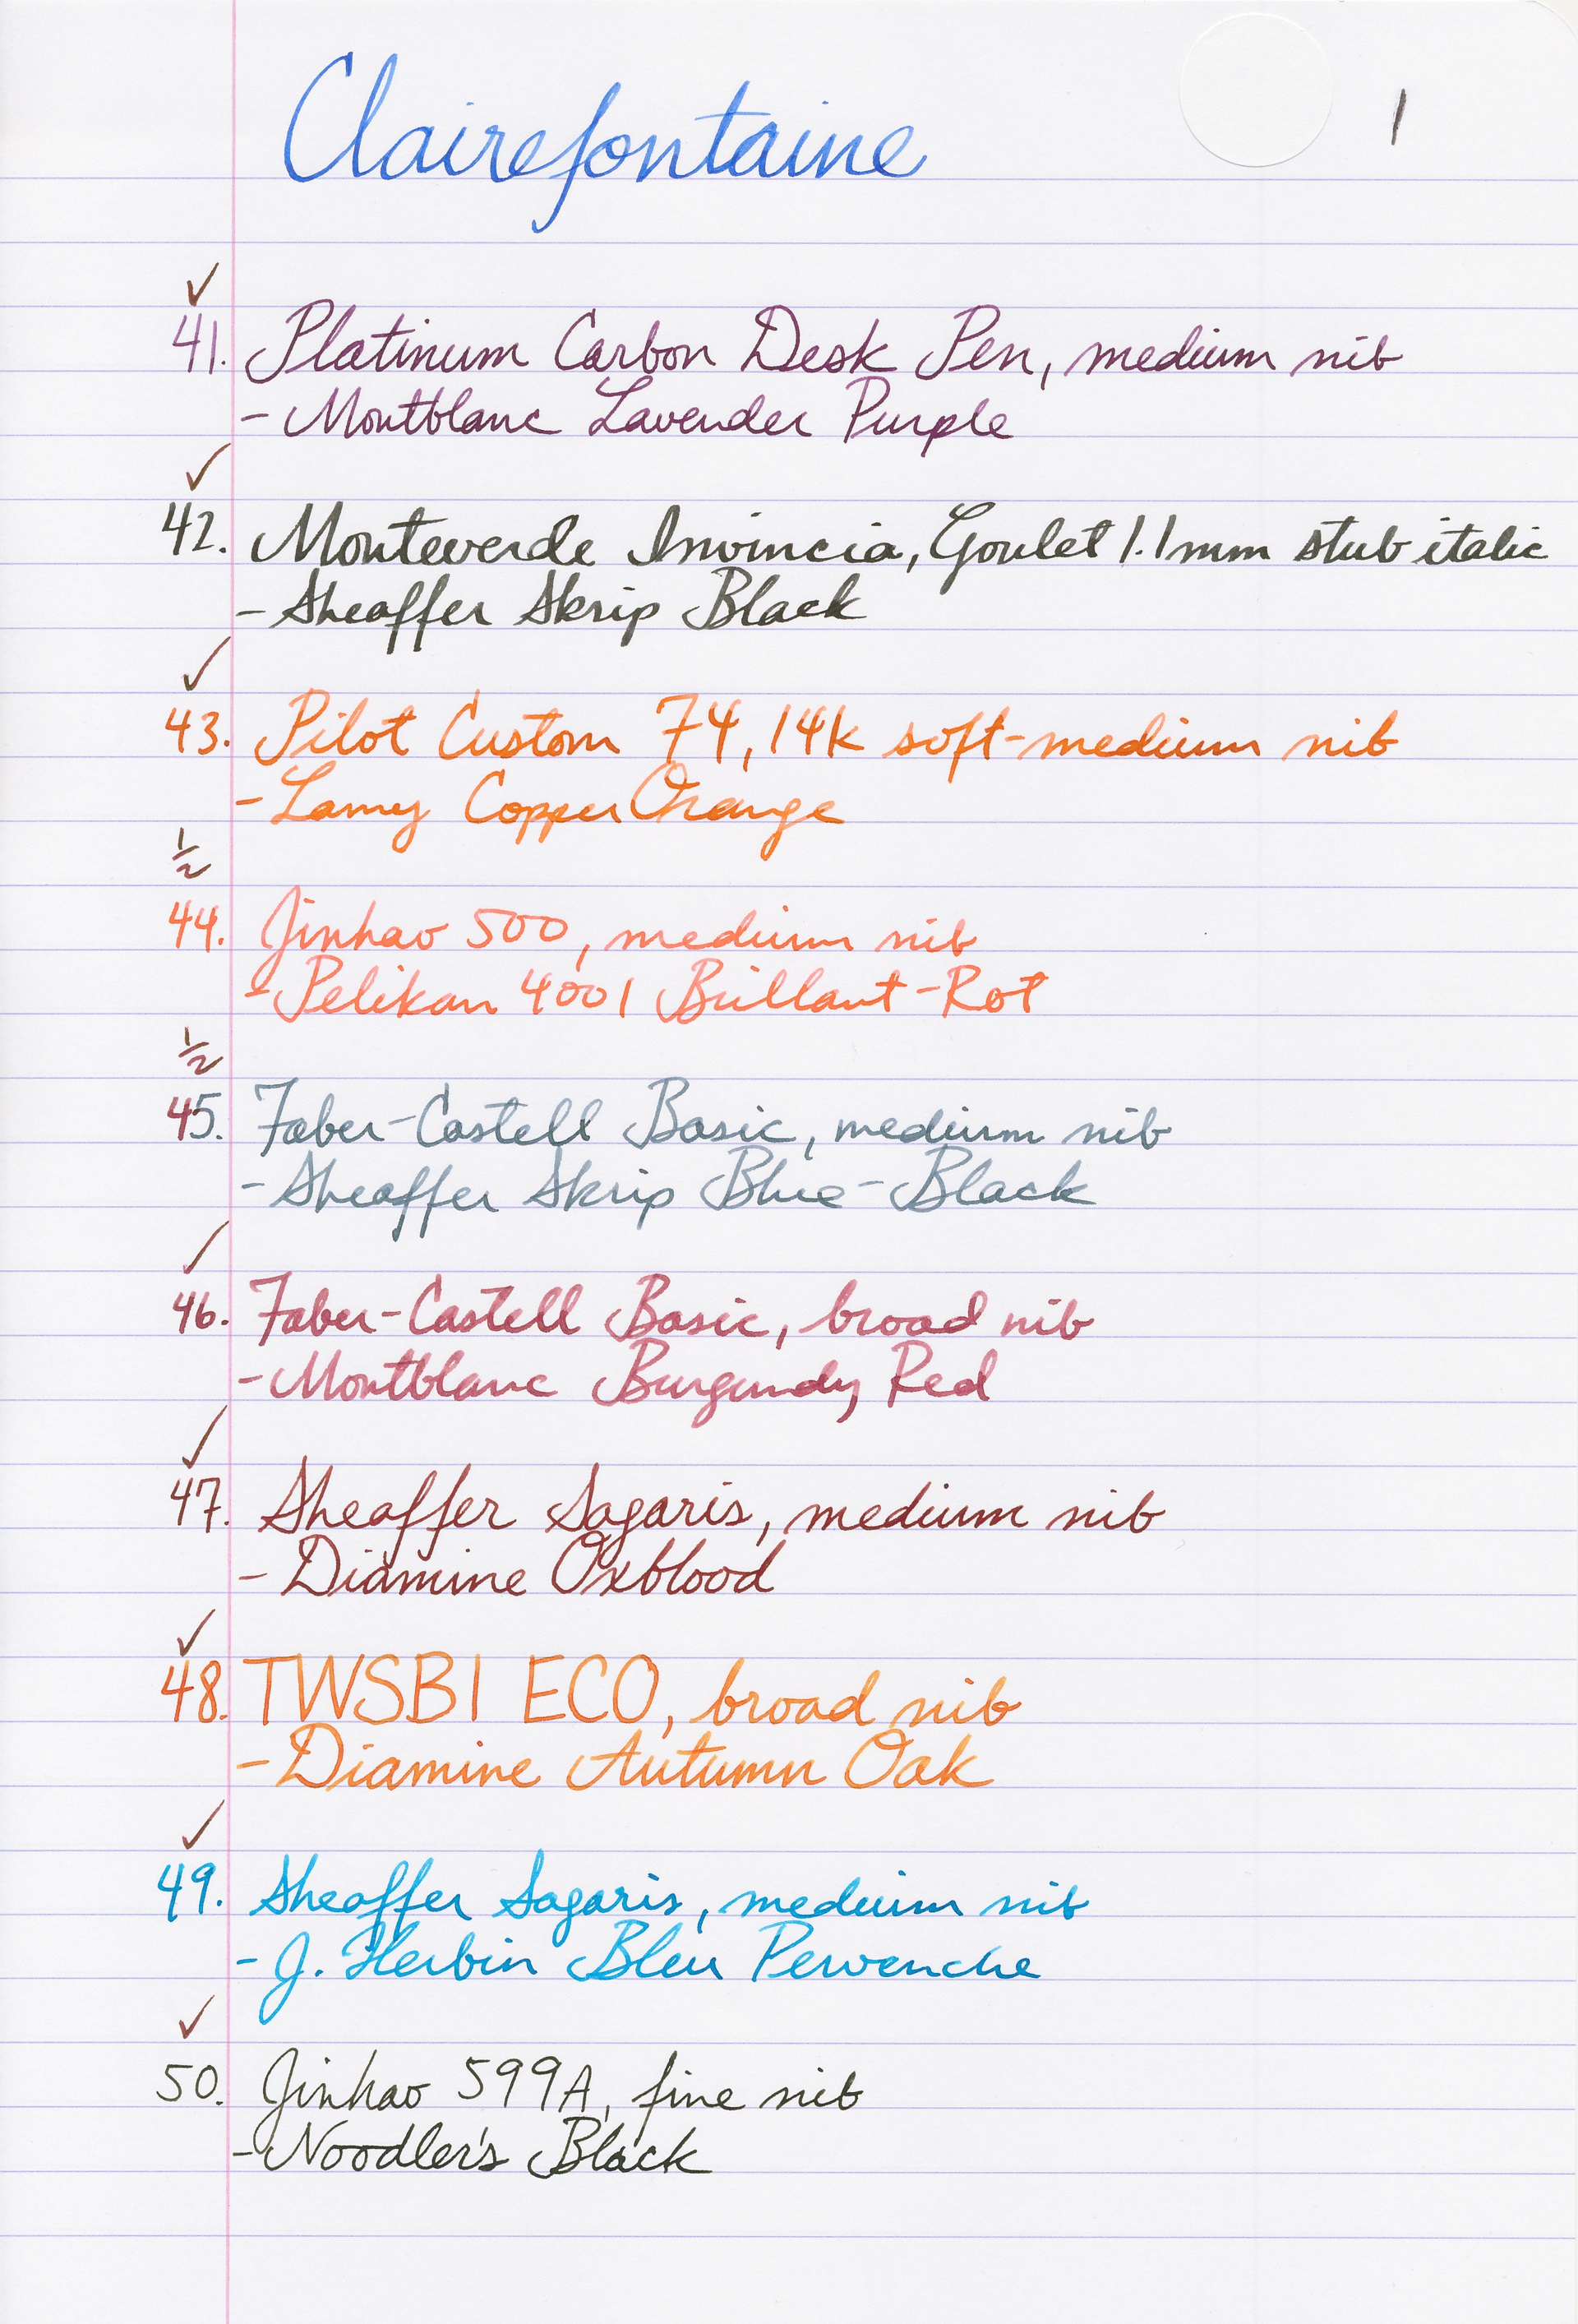 Clairefontaine
1
✓
41. Platinum Carbon Desk Pen, medium nib
- Montblanc Lavender Purple
✓
42. Monteverde Invincia, Goulet 1.1mm stub italic
- Sheaffer Skrip Black
✓
43. Pilot Custom 74, 14k soft-medium nib
- Lamy Copper Orange
1/2
44. Jinhao 500, medium nib
- Pelikan 4001 Brillant-Rot
1/2
45. Faber-Castell Basic, medium nib
- Sheaffer Skrip Blue-Black
✓
46. Faber-Castell Basic, broad nib
- Montblanc Burgundy Red
✓
47. Sheaffer Sagaris, medium nib
- Diamine Oxblood
✓
48. TWSBI ECO, broad nib
- Diamine Autumn Oak
✓
49. Sheaffer Sagaris, medium nib
- J. Herbin Bleu Pervenche
✓
50. Jinhao 599A, fine nib
- Noodler's Black